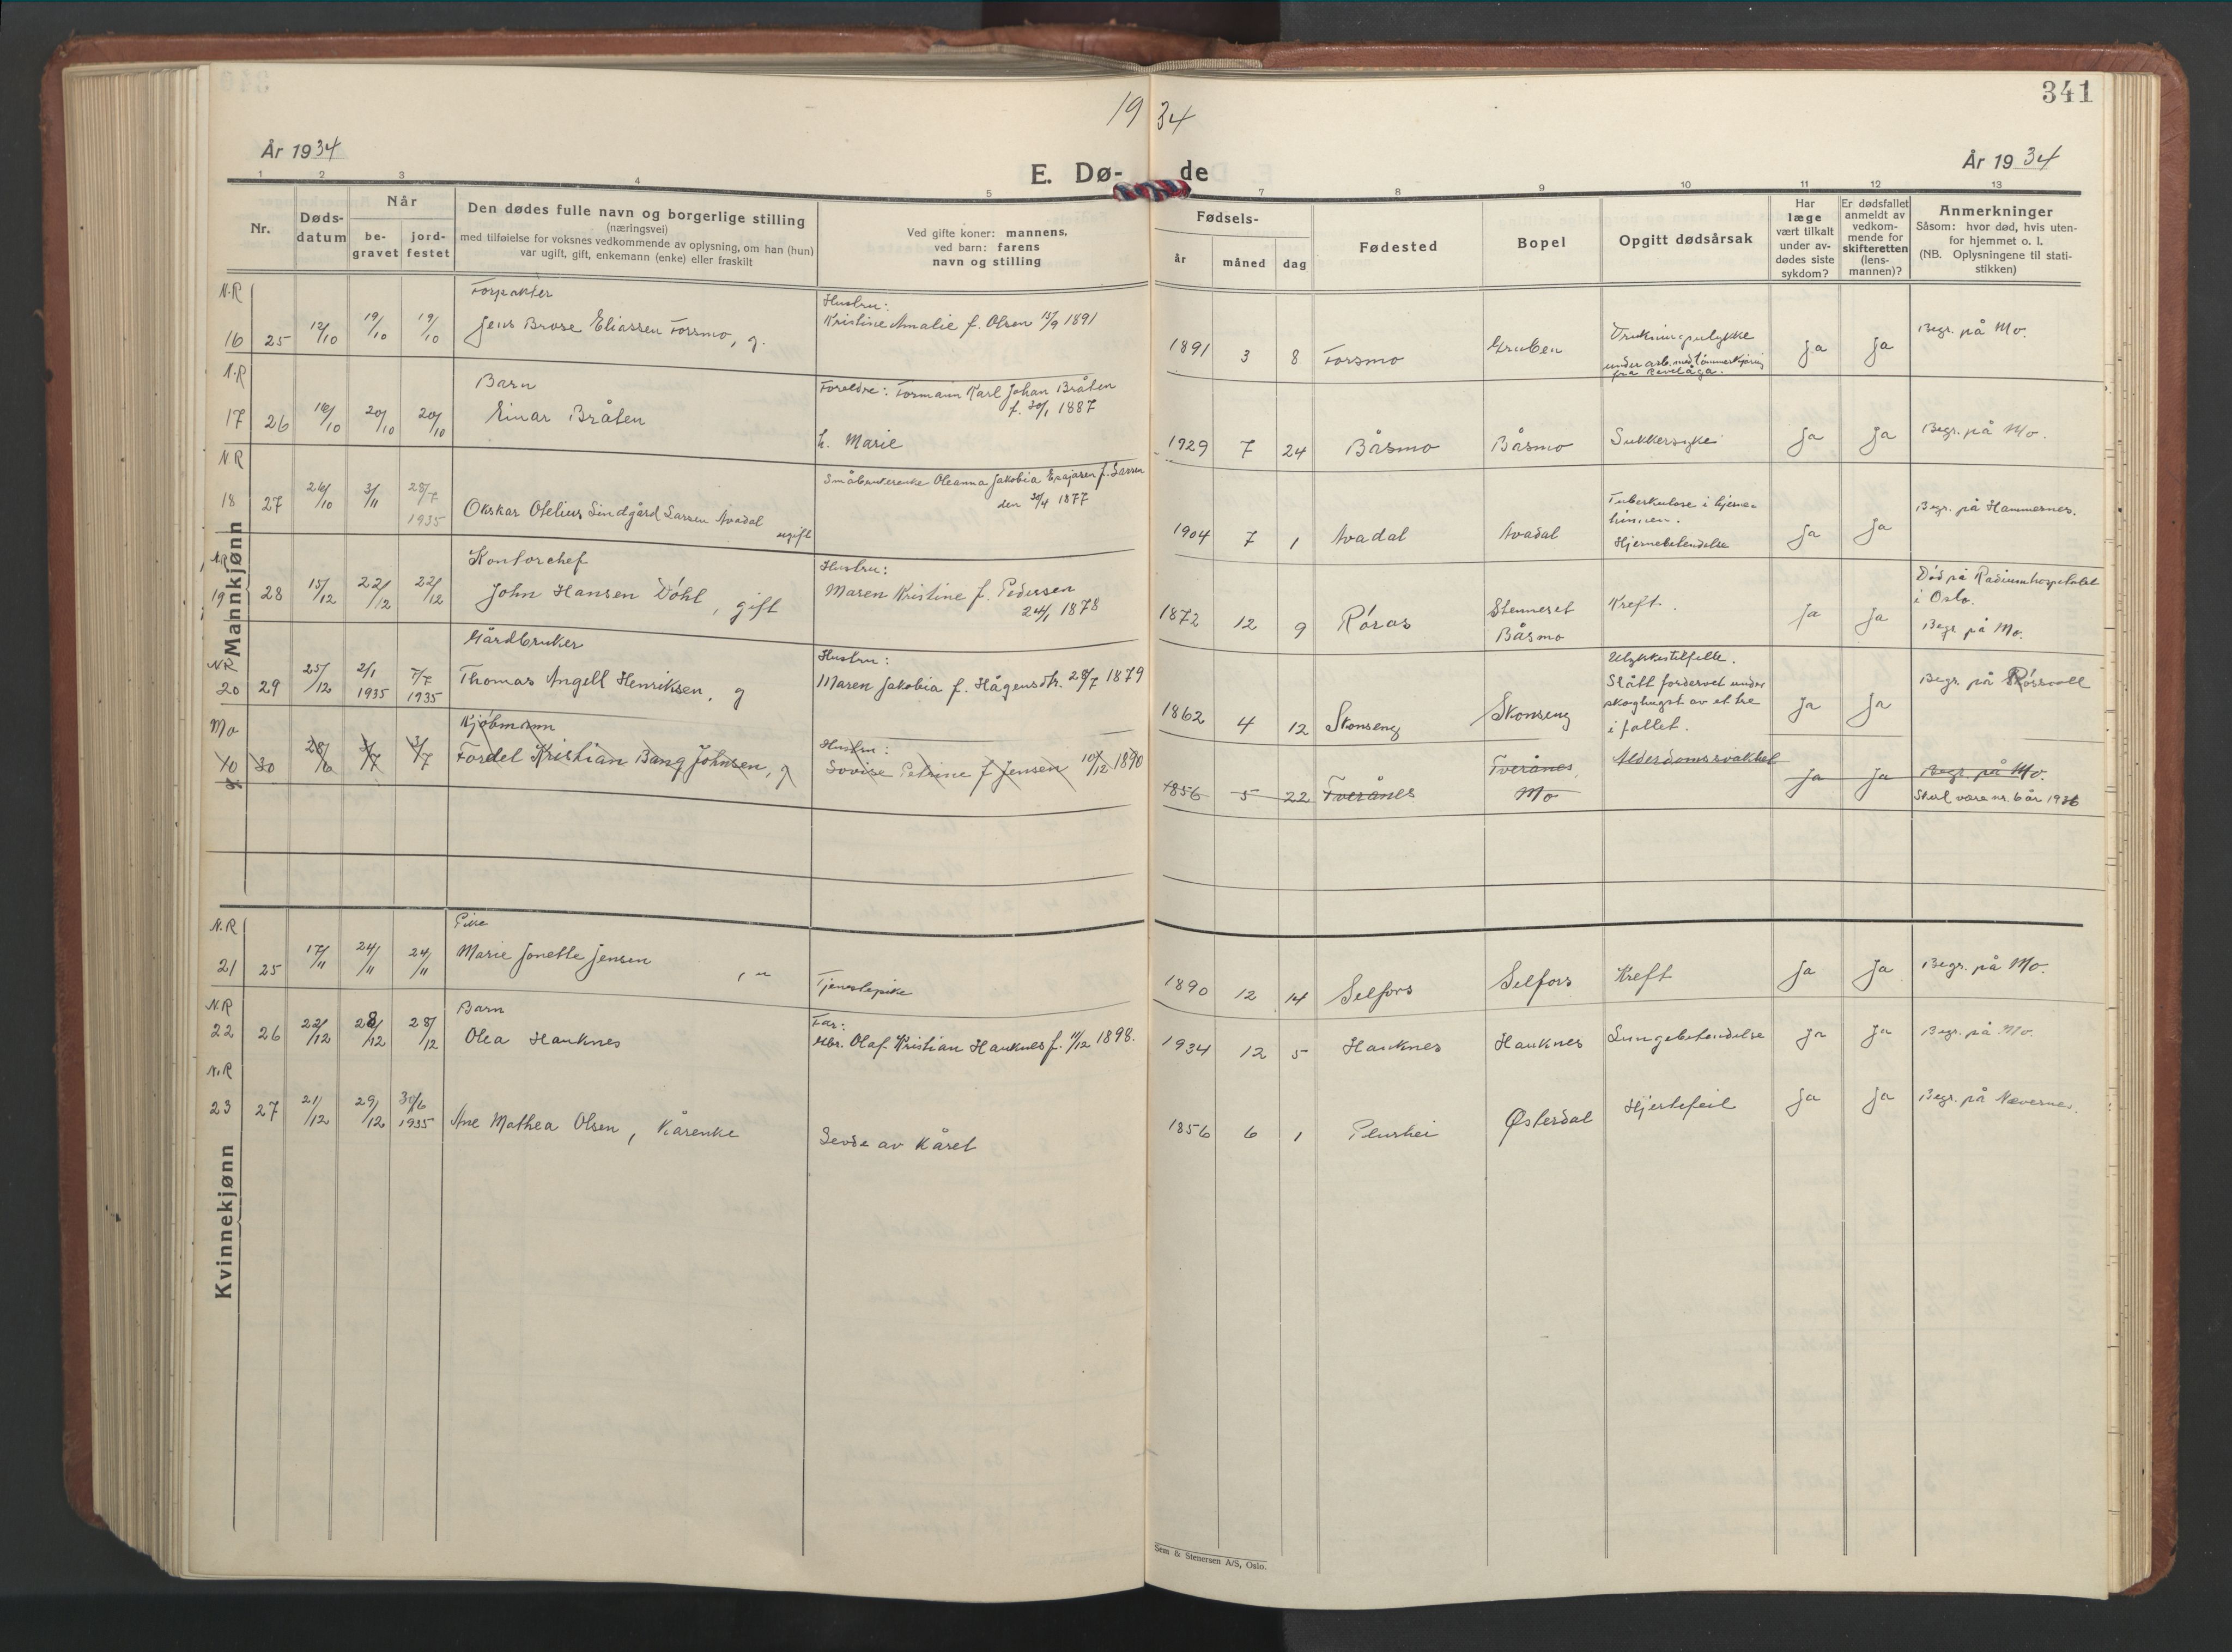 341
19 34
År 1934
År 1934
E. Dø- de
1 2 3 4 5 7 8 9 10 11 12 13
Nr.
Døds-
datum
Når
be-
gravet
jord-
festet
Den dødes fulle navn og borgerlige stilling
(næringsvei)
med tilføielse for voksnes vedkommende av oplysning, om han (hun)
var ugift, gift, enkemann (enke) eller fraskilt
Ved gifte koner: mannens,
ved barn: farens
navn og stilling
Fødsels-
år måned dag
Fødested
Bopel
Opgitt dødsårsak
Har
læge
vært tilkalt
under av-
dødes siste
sykdom?
Er dødsfallet
anmeldt av
vedkom-
mende for
skifteretten
(lens-
mannen)?
Anmerkninger
Såsom: hvor død, hvis uten-
for hjemmet o. l.
(NB. Oplysningene til stati-
stikken)
Mannkjønn
N.R
16 25 12/10 19/10 19/10
Forpakter
Jens Brose Eliassen Forsmo, g.
Hustru:
Kristine Amalie f. Olsen 15/9 1891
1891 3 8 Forsmo Gruben
Drukningsulykke
under arb. med tømmerkjøring
fra Revelåga.
Ja Ja Begr. på Mo.
N.R
17 26 16/10 20/10 20/10
Barn
Einar Bråten
Foreldre: Formann Karl Johan Bråten
f. 30/1 1887
h. Marie
1929 7 24 Båsmo Båsmo Sukkersyke Ja Ja Begr. på Mo.
N R
18 27 26/10 3/11 28/7
1935
Okskar Otelius Lindgård Larsen Avadal
ugift
Oleanna Jakobia f. Larsen
den 30/4 1877
1904 7 1 Avadal Avadal
Tuberkulose i hjerne-
hinnen.
Hjernebetendelse
Ja Ja Begr. på Hammernes.
N.R
19 28 15/12 22/12 22/12
Kontorchef
John Hansen Döhl, gift
Hustru:
Maren Kristine f. Pedersen
24/1 1878
1872 12 9 Röros
Stenneset
Båsmo
Kreft.
Ja Ja
Död på Radiumhospitalet
i Oslo.
Begr på Mo.
N R
20 29 25/12 2/1
1935 7/7
1935
Gårdbruker
Thomas Angell Henriksen, g
Hustru:
Maren Jakobia f. Hågensdtr. 28/7 1879
1862 4 12 Skonseng Skonseng
Ulykkestilfelle.
Slått fordervet under
skoghugst av et tre
i fallet.
Ja Ja Begr. på Røssvoll
Mo
10 30 28/6 3/7 3/7
Kjøbmann
Fordel Kristian Bang Johnsen, g
Hustru:
Lovise Petrine f Jensen 10/12 1890
1856 5 22 Tverånes
Tverånes,
Mo
Alderdomssvakhet
Ja Ja Begr. på Mo.
Skal være nr. 6 år 1936
Kvinnekjønn
N.R
21 25 17/11 24/11 24/11
Pike
Marie Jonette Jensen, "
Tjenestepike
1890 12 14 Selfors Selfors Kreft Ja Ja Begr. på Mo.
N.R
22 26 22/12 28/12 28/12
Barn
Olea Hauknes
Far:
Gbr. Olaf Kristian Hauknes f. 11/12 1898.
1934 12 5 Hauknes Hauknes Lungebetendelse Ja Ja Begr. på Mo.
N.R
23 27 21/12 29/12 30/6
1935
Ane Mathea Olsen, Kårenke
Levde av kåret
1856 6 1 Plurhei Østerdal Hjertefeil Ja Ja Begr. på Nevernes.
Sem & Stenersen A/S, Oslo.